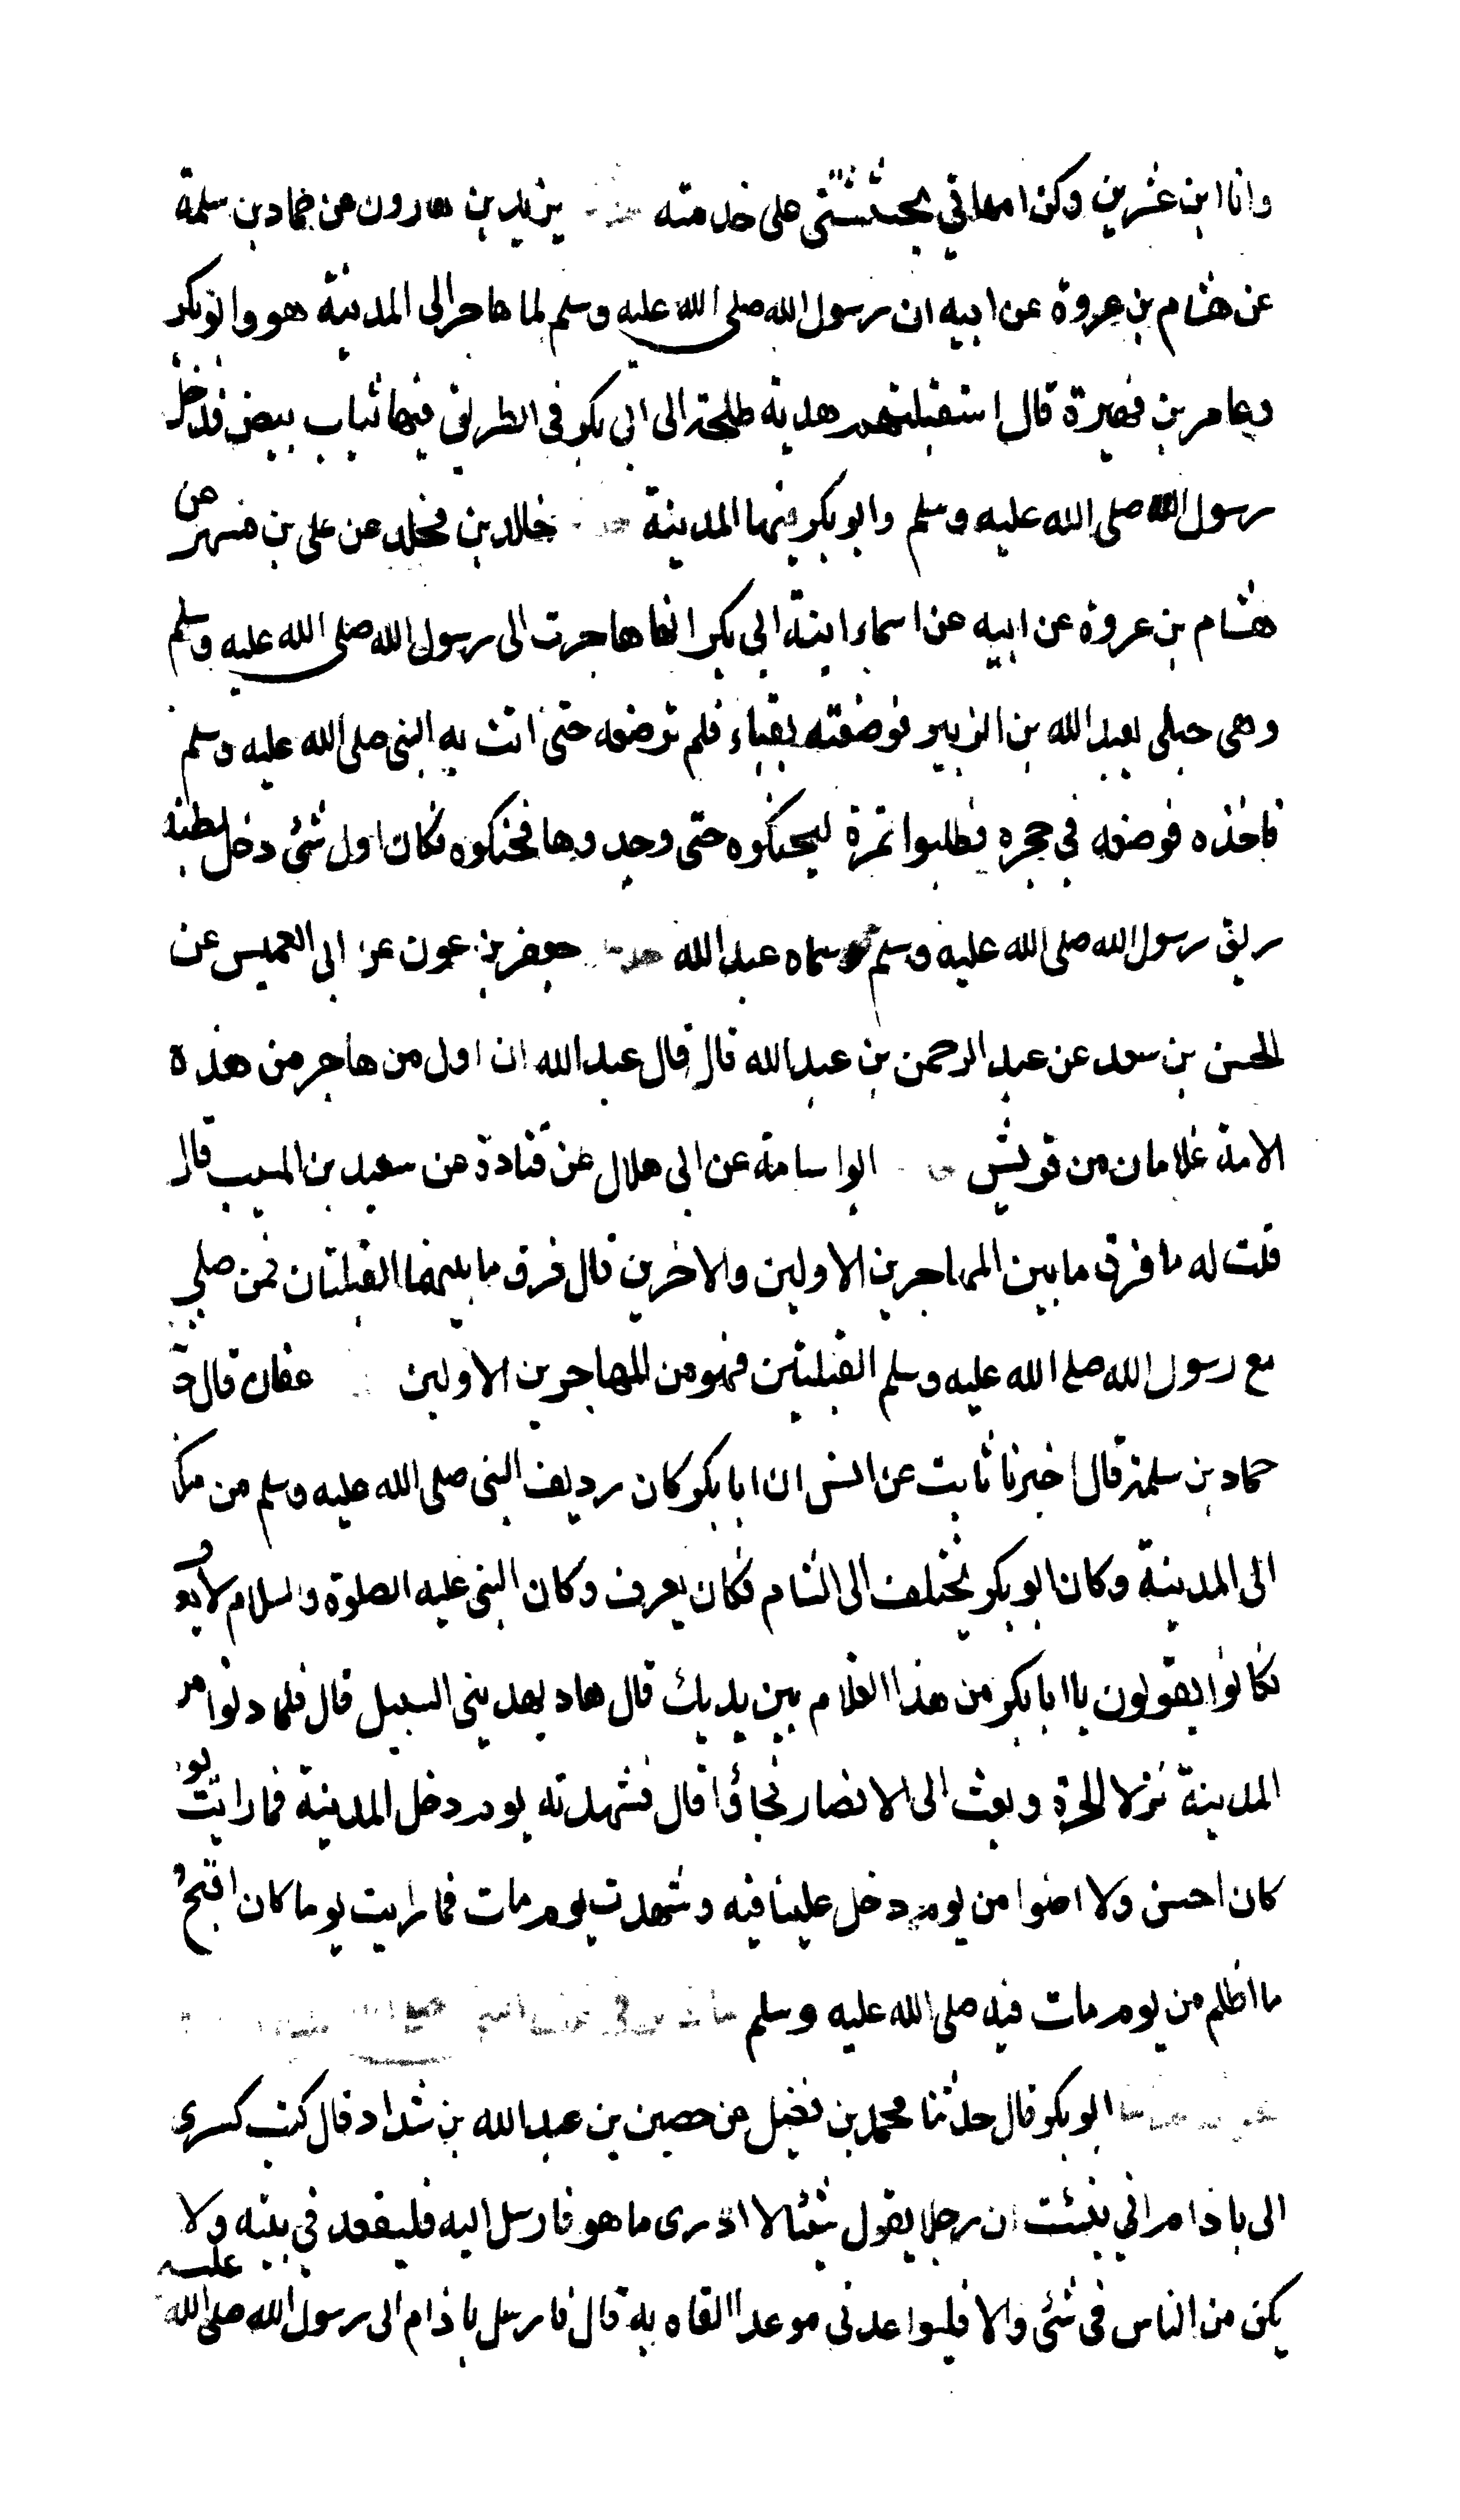 وانا ابن عشرين وكن امهاتي يحثثنني على خدمته يزيد بن هارون عن حماد بن سلمة
عن هشام بن عروة عن ابيه ان رسول الله صلى الله عليه وسلم لما هاجر الى المدينة هو وابوبكر
وعامر بن فهيرة قال استقبلتهم هدية طلحة الى ابي بكر في الطريق فيها ثياب بيض فدخل
رسول الله صلى الله عليه وسلم وابو بكر فيها المدينة خالد بن مخلد عن علي بن مسهر عن
هشام بن عروة عن ابيه عن اسماء ابنة ابي بكر انها هاجرت الى رسول الله صلى الله عليه وسلم
وهى حبلى بعبد الله بن الزبير فوضعته بقباء فلم ترضعه حتى اتت به النبى صلى الله عليه وسلم
فاخذه فوضعه في حجره فطلبوا تمرة ليحنكوه حتى وجدوها فحنكوه فكان اول شئ دخل بطنه
ريق رسول الله صلى الله عليه وسلم وسماه عبد الله جعفر بن عون عن ابى العميس عن
الحسن بن سعد عن عبد الرحمن بن عبد الله قال قال عبد الله ان اول من هاجر من هذه
الامة غلامان من قريش ابو اسامة عن ابى هلال عن قتادة عن سعيد بن المسيب قال
قلت له ما فرق ما بين المهاجرين الاولين والاخرين قال فرق ما بينهما القبلتان فمن صلى
مع رسول الله صلى الله عليه وسلم القبلتين فهو من المهاجرين الاولين عفان قال ثنا
حماد بن سلمة قال اخبرنا ثابت عن انس ان ابا بكر كان رديف النبى صلى الله عليه وسلم من مكة
الى المدينة وكان ابو بكر يختلف الى الشام فكان يعرف وكان النبى عليه الصلوة والسلام لا يعرف
فكانوا يقولون يا ابا بكر من هذا الغلام بين يديك قال هاد يهدينى السبيل قال فلما دنوا من
المدينة نزلا الحرة وبعث الى الانصار فجاؤا قال فشهدته يوم دخل المدينة فما رايت يوما
كان احسن ولا اضوا من يوم دخل علينا فيه وشهدت يوم مات فما رايت يوما كان اقبح و
ما اظلم من يوم مات فيه صلى الله عليه وسلم
ابو بكر قال حدثنا محمد بن فضيل عن حصين بن عبد الله بن شداد قال كتب كسرى
الى باذام اني نبئت ان رجلا يقول شيئا لا ادرى ما هو فارسل اليه فليقعد في بيته ولا
يكن من الناس فى شئ والا فليواعدنى موعدا القاه به قال فارسل باذام الى رسول الله صلى الله عليه